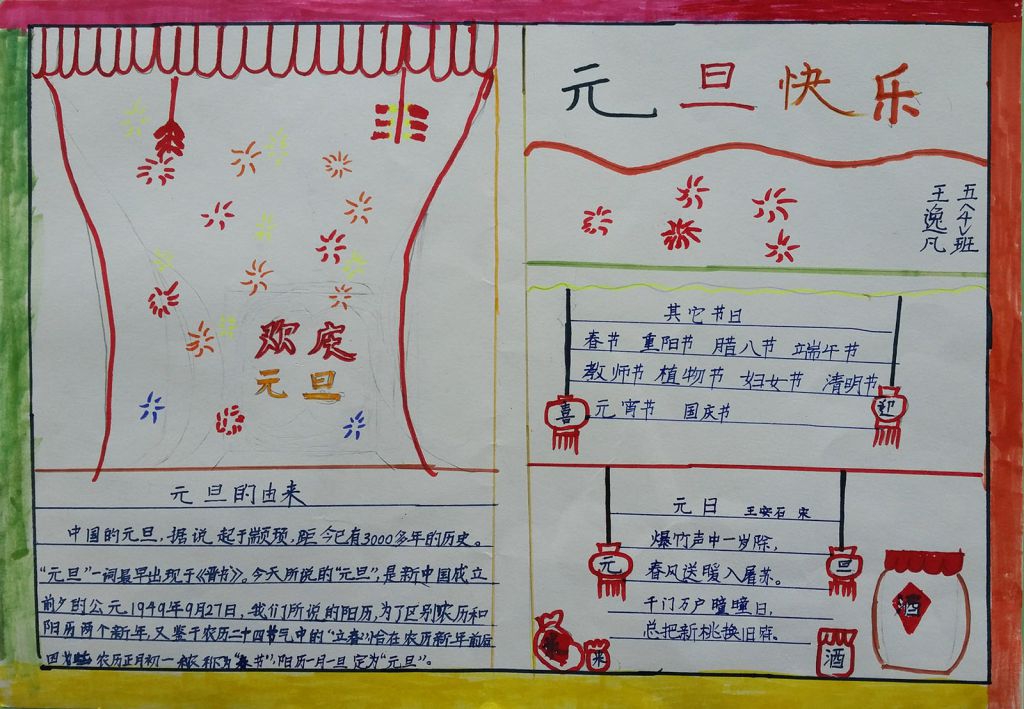 欢庆
元旦
元旦的由来
中国的元旦,据说起于颛顼,距今已有3000多年的历史。
“元旦”一词最早出现于《晋书》。今天所说的“元旦”,是新中国成立
前夕的公元1949年9月27日,我们所说的阳历,为了区别农历和
阳历两个新年,又鉴于农历二十四节气中的“立春”恰在农历新年前后
因 农历正月初一 称为“春节”,阳历一月一旦定为“元旦”。
元旦快乐
五〈4〉班
王逸凡
其它节日
春节 重阳节 腊八节 端午节
教师节 植物节 妇女节 清明节
元宵节 国庆节
喜
迎
元日 王安石 宋
爆竹声中一岁除,
春风送暖入屠苏。
千门万户瞳瞳日,
总把新桃换旧府。
元
旦
米
酒
酒